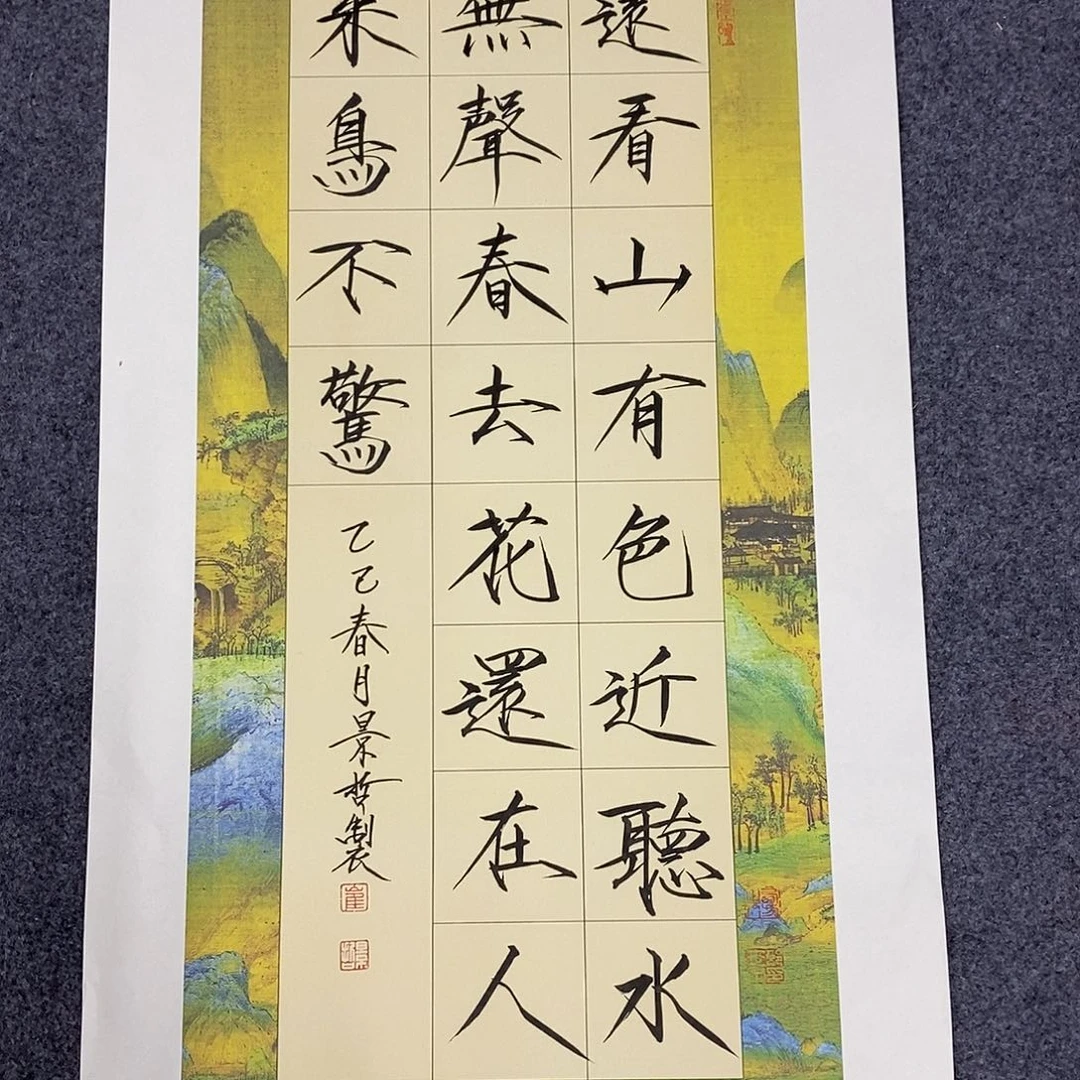 遠看山有色近聽水
無聲春去花還在人
來鳥不驚
乙巳春月景哲製
崔
景哲